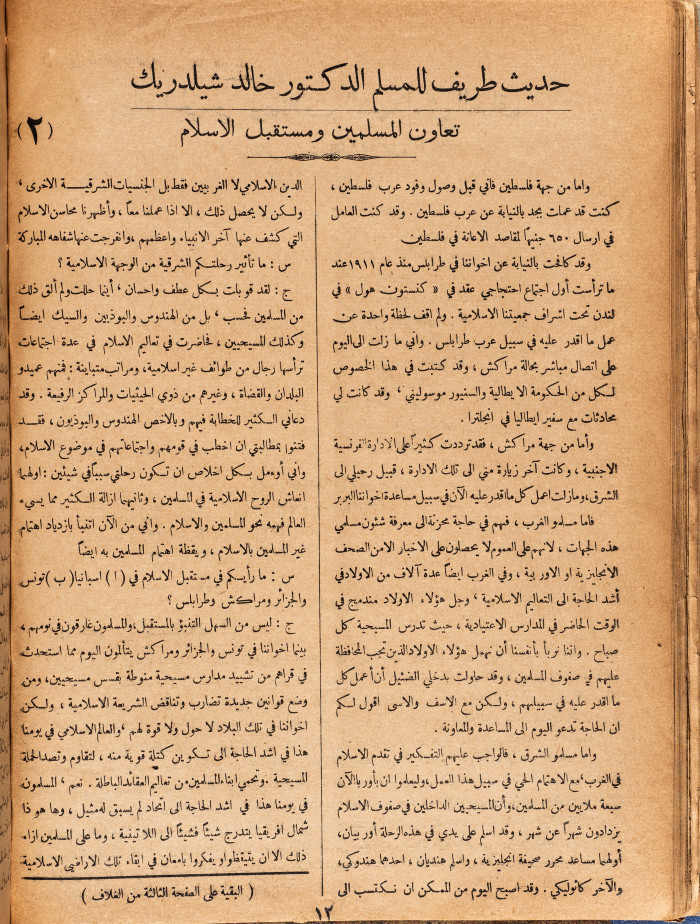 حديث طريف للمسلم الدكتور خالد شيلدريك
تعاون المسلمين ومستقبل الاسلام
(٢)
واما من جهة فلسطين فاني قبل وصول وفود عرب فلسطين ،
كنت قد عملت بجد بالنيابة عن عرب فلسطين . وقد كنت العامل
في ارسال ٦٥٠ جنيهاً لمقاصد الاعانة في فلسطين
وقد كافحت بالنيابة عن اخواننا في طرابلس منذ عام ١٩١١ عند
ما ترأست أول اجتماع احتجاجي عقد في « كنستون هول » في
لندن تحت اشراف جمعيتنا الاسلامية . ولم اقف لحظة واحدة عن
عمل ما اقدر عليه في سبيل عرب طرابلس . واني ما زلت الى اليوم
على اتصال مباشر بحالة مراكش ، وقد كتبت في هذا الخصوص
لكل من الحكومة الايطالية والسنيور موسوليني ، وقد كانت لي
محادثات مع سفير ايطاليا في انجلترا .
وأما من جهة مراكش ، فقد ترددت كثيراً على الادارة الفرنسية
الاجنبية ، وكانت آخر زيارة مني الى تلك الادارة ، قبيل رحيلي الى
الشرق، ومازلت اعمل كل ما اقدر عليه الآن في سبيل مساعدة اخواننا البربر
فاما مسلمو الغرب ، فهم في حاجة محزنة الى معرفة شئون مسلمي
هذه الجهات ، لانهم على العموم لا يحصلون على الاخبار الا من الصحف
الانجليزية او الاوربية ، وفي الغرب ايضاً عدة آلاف من الاولاد في
أشد الحاجة الى التعاليم الاسلامية ، وجل هؤلاء الاولاد مندمج في
الوقت الحاضر في المدارس الاعتيادية ، حيث تدرس المسيحية كل
صباح . واننا نربأ بأنفسنا أن نهمل هؤلاء الاولاد الذين تجب المحافظة
عليهم في صفوف المسلمين ، وقد حاولت بدخلي الضئيل أن أعمل كل
ما اقدر عليه في سبيلهم ، ولكن مع الاسف والاسى اقول لكم
ان الحاجة تدعو اليوم الى المساعدة والمعاونة .
واما مسلمو الشرق ، فالواجب عليهم التفكير في تقدم الاسلام
في الغرب ، مع الاهتمام الحي في سبيل هذا العمل، وليعلموا ان بأوربا الآن
سبعة ملايين من المسلمين، وأن المسيحيين الداخلين في صفوف الاسلام
يزدادون شهراً عن شهر ، وقد اسلم على يدي في هذه الرحلة أوربيان،
أولهما مساعد محرر صحيفة انجليزية ، واسلم هنديان ، احدهما هندوكي،
والآخر كاثوليكي . وقد اصبح اليوم من الممكن ان نكتسب الى
الدين الاسلامي لا الغربيين فقط بل الجنسيات الشرقيـة الاخرى ،
ولكن لا يحصل ذلك ، الا اذا عملنا معاً ، وأظهرنا محاسن الاسلام
التي كشف عنها آخر الانبياء واعظمهم ، وانفرجت عنها شفاهه المباركة
س : ما تأثير رحلتكم الشرقية من الوجهة الاسلامية ؟
ج : لقد قوبلت بكل عطف واحسان ، أينما حللت ولم ألق ذلك
من المسلمين فحسب ، بل من الهندوس والبوذيين والسيك ايضـاً
وكذلك المسيحيين ، فحاضرت في تعاليم الاسلام في عدة اجتماعات
ترأسها رجال من طوائف غير اسلامية، ومراتب متباينة : فمنهم عميدو
البلدان والقضاة ، وغيرهم من ذوي الحيثيات والمراكز الرفيعة . وقد
دعاني الكثير للخطابة فيهم وبالاخص الهندوس والبوذيون ، فقـد
فتنوا بمطالبتي ان اخطب في قومهم واجتماعاتهم في موضوع الاسلام،
واني أؤمل بكل اخلاص ان تكون رحلتي سبباً في شيئين : اولهما
انعاش الروح الاسلامية في المسلمين ، وثانيهما ازالة الكثير مما يسيء
العالم فهمه نحو المسلمين والاسلام . واني من الآن اتنبأ بازدياد اهتمام
غير المسلمين بالاسلام ، ويقظة اهتمام المسلمين به ايضاً
س : ما رأيكم في مستقبل الاسلام في (ا) اسبانيا (ب) تونس
والجزائر ومراكش وطرابلس ؟
ج : ليس من السهل التنبؤ بالمستقبل، والمسلمون غارقون في نومهم ،
بينما اخواننا في تونس والجزائر ومراكش يتألمون اليوم مما استحدث
في قراهم من تشييد مدارس مسيحية منوطة بقسس مسيحيين، ومن
وضع قوانين جديدة تضارب وتناقض الشريعة الاسلامية ، ولـكن
اخواننا في تلك البلاد لا حول ولا قوة لهم ، والعالم الاسلامي في يومنا
هذا في اشد الحاجة الى تكوين كتلة قوية منه ، لتقاوم وتصد الحملة
المسيحية ، وتحمي ابناء المسلمين من تعاليم العقائد الباطلة . نعم ، المسلمون
في يومنا هذا في اشد الحاجة الى اتحاد لم يسبق له مثيل ، وها هو ذا
شمال افريقيا يتدرج شيئاً فشيئاً الى اللاتينية ، وما على المسلمين ازاء
ذلك الا ان يتيقظوا ويفكروا بامعان في ابقاء تلك الاراضي الاسلامية
( البقية على الصفحة الثالثة من الغلاف )
١٢